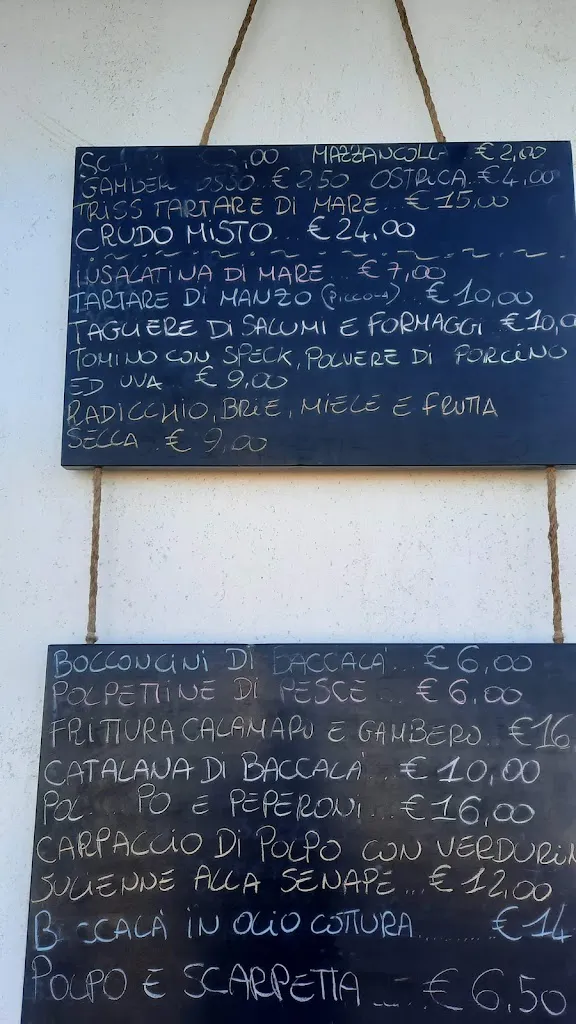 MAZZANCOLLA € 2,00
€ 2,50 OSTRICA € 4,00
TRISS TARTARE DI MARE... € 15,00
CRUDO MISTO... € 24,00
INSALATINA DI MARE... € 7,00
TARTARE DI MANZO (PICCOLA). € 10,00
TAGLIERE DI SALUMI E FORMAGGI €10,0
TOMINO CON SPECK, POLVERE DI PORCINO
ED UVA € 9,00
RADICCHIO, BRIE, MIELE E FRUTTA
SECCA .. € 9,00
BOCCONCINI DI BACCALÀ... € 6,00
POLPETTINE DI PESCE € 6,00
FRITTURA CALAMARO E GAMBERO.. €16
CATALANA DI BACCALÀ ... € 10,00
E PEPERONI... €16,00
CARPACCIO DI POLPO CON VERDURIN
JULIENNE ALLA SENAPE... € 12,00
BACCALÀ IN OLIO COTTURA........ €14
POLPO E SCARPETTA ... € 6,50